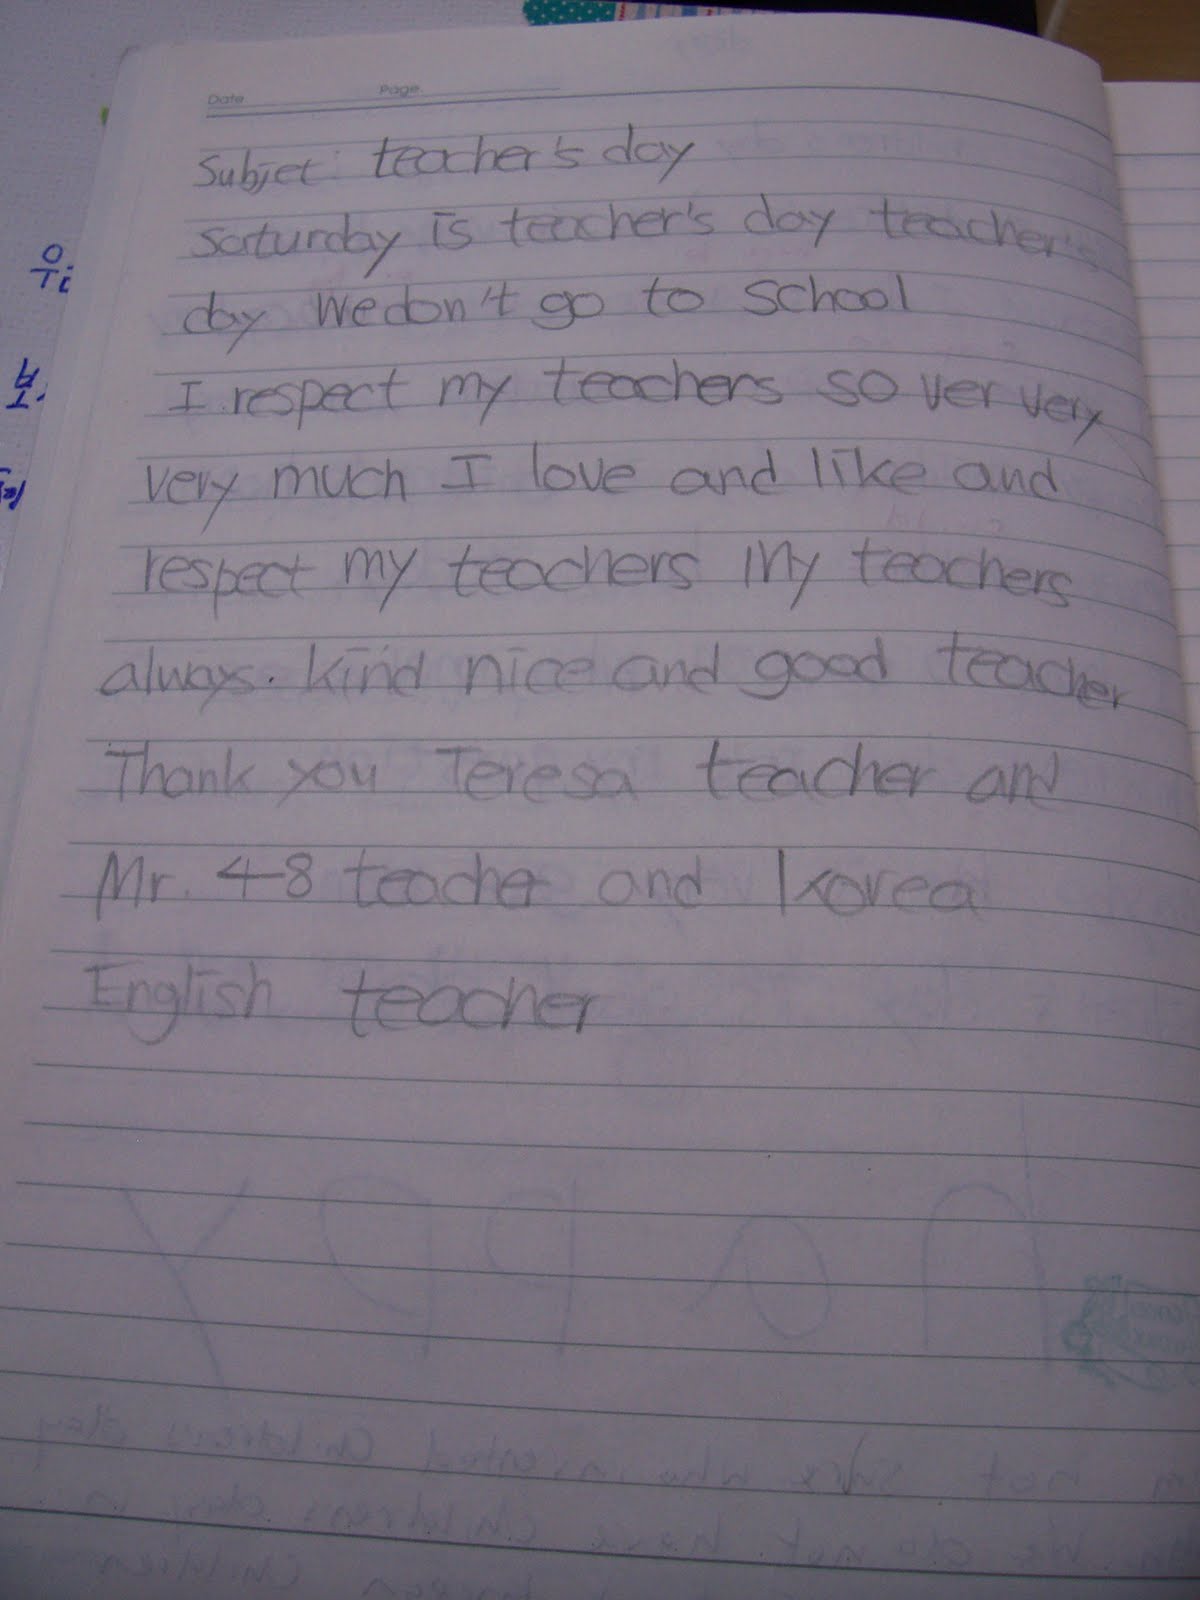 Date Page
Subjet: teacher's day
Saturday is teacher's day teacher's
day We don't go to school
I respect my teachers so ver very
very much I love and like and
respect my teachers My teachers
always. kind nice and good teacher
Thank you Teresa teacher and
Mr. 4-8 teacher and Korea
English teacher